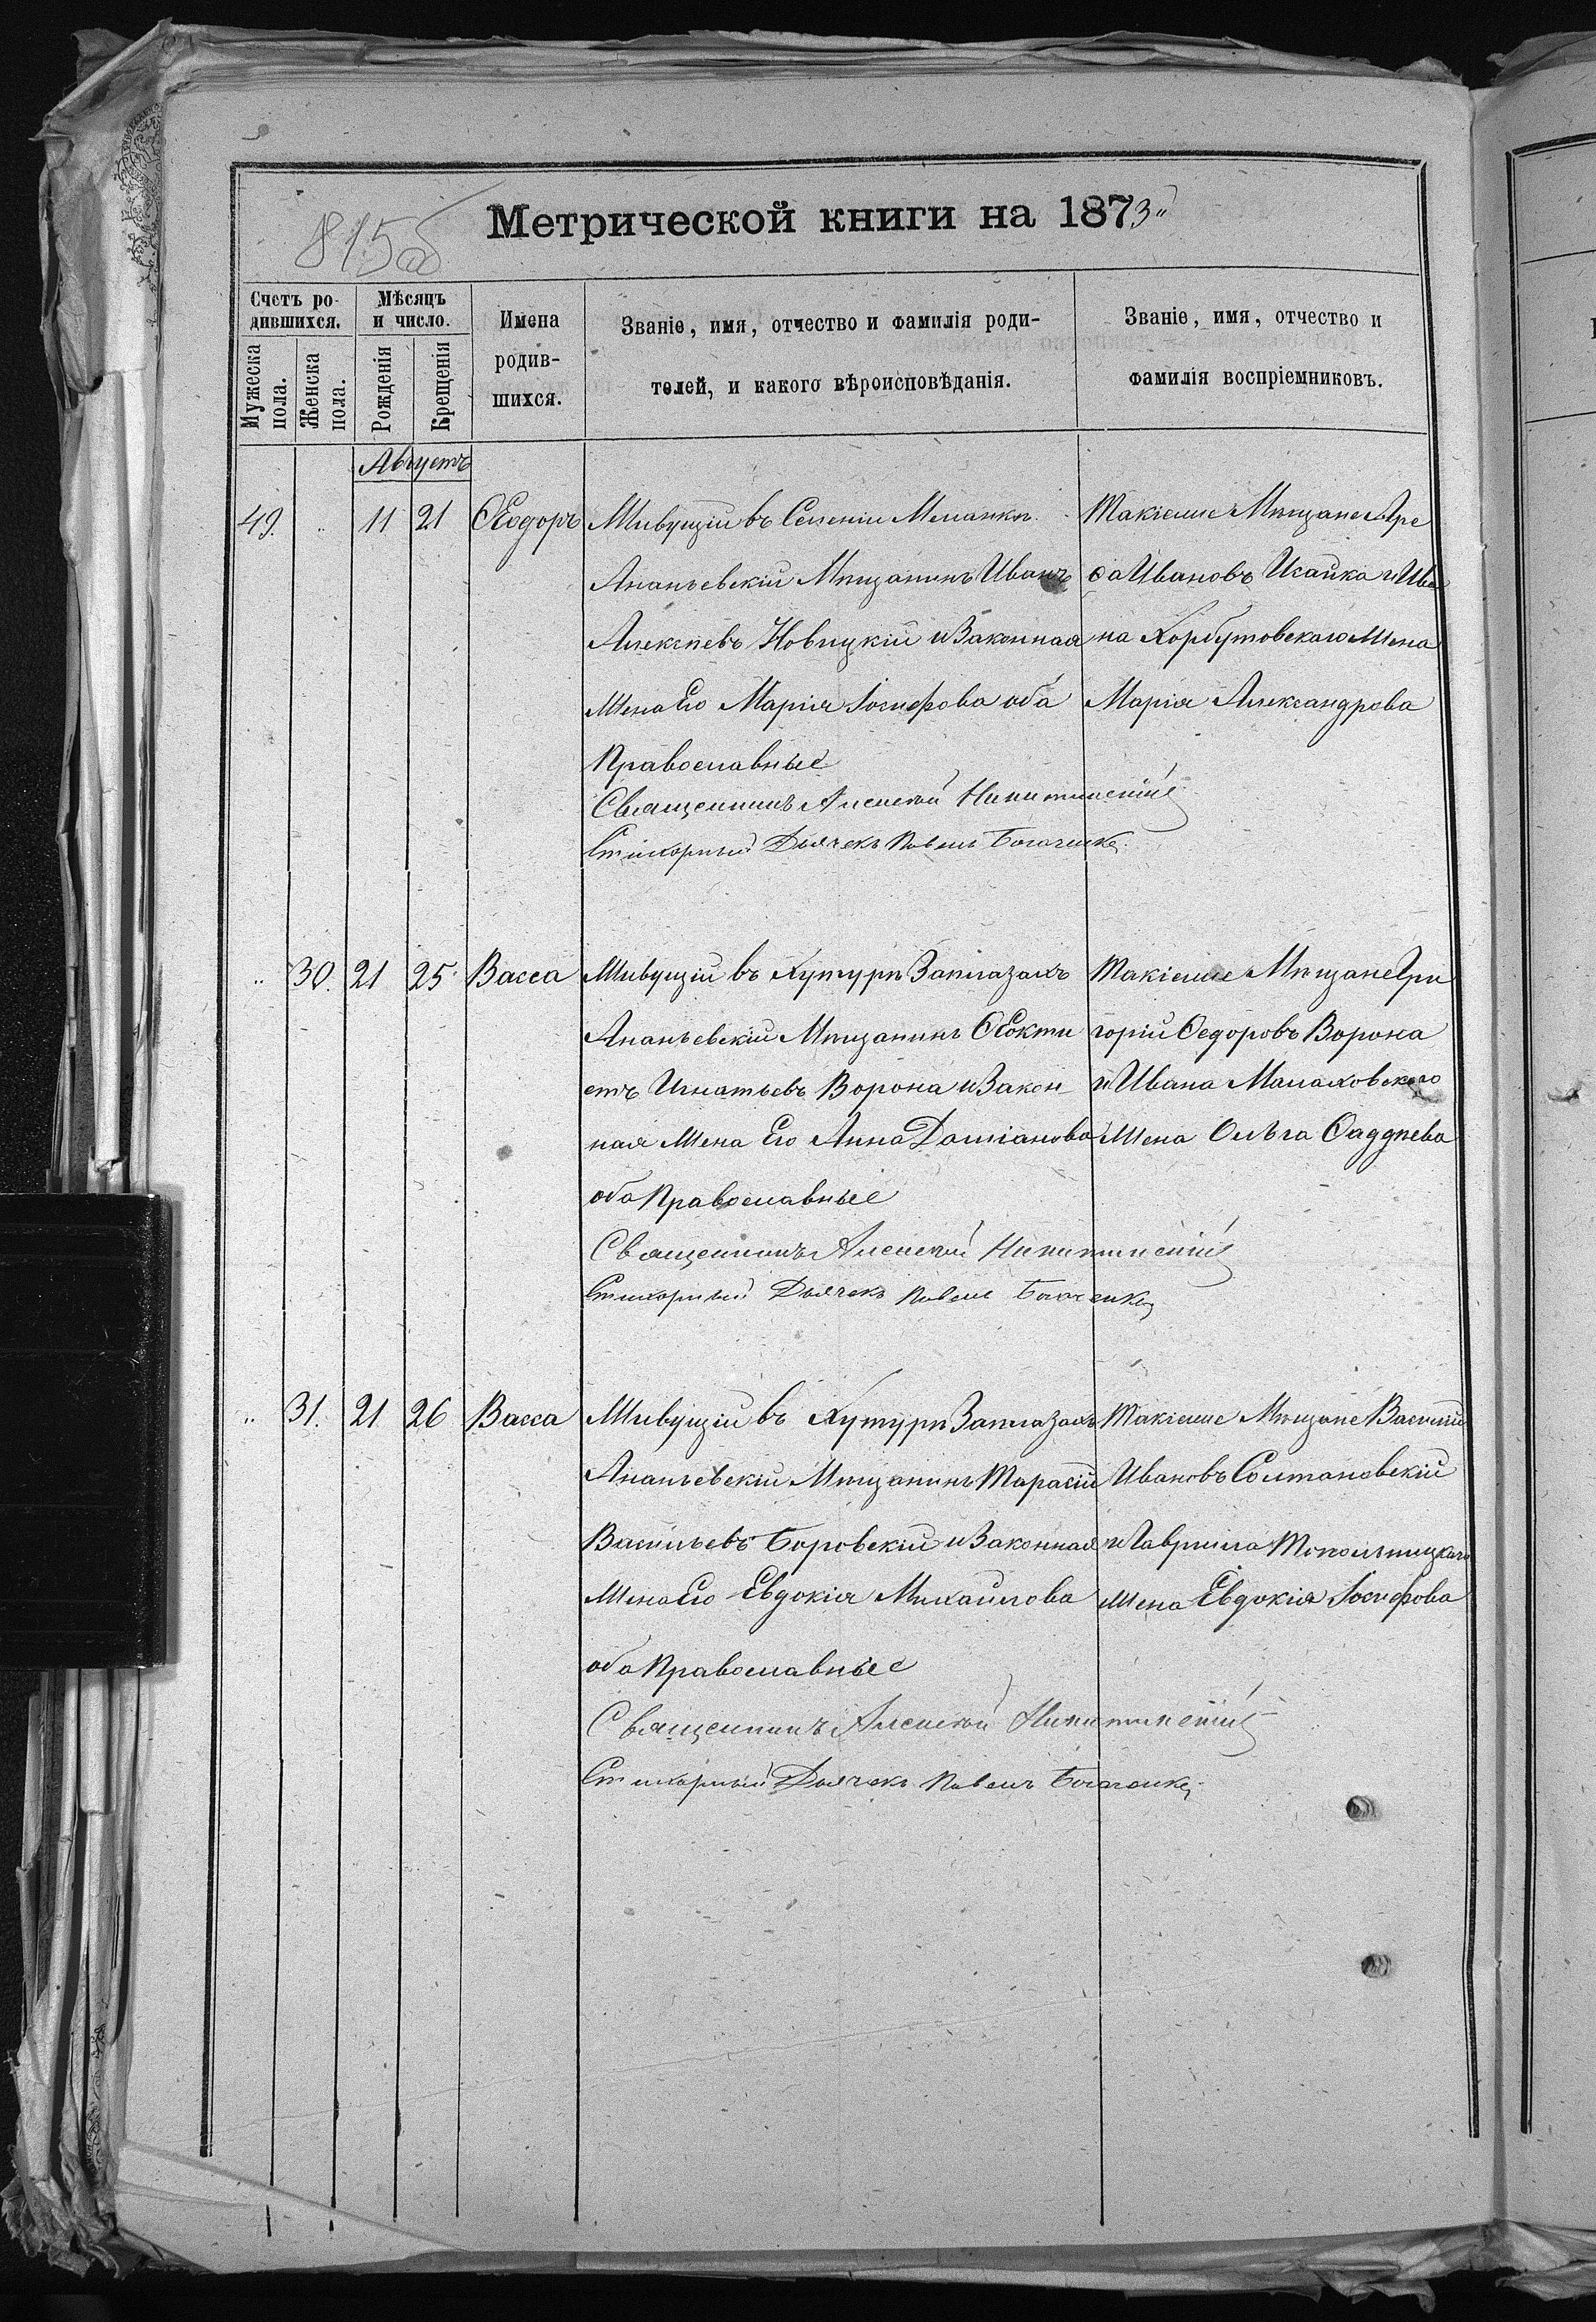 Метрической книги на 1873
815об
Счетъ ро-
дившихся.
Мужеска пола.
Женска пола.
Мѣсяцъ
и число.
Рожденія
Крещенія
Имена
родив-
шихся.
Званіе, имя, отчество и фамилія роди-
телей, и какого вѣроисповѣданія.
Званіе, имя, отчество и
фамилія воспріемниковъ.
Августъ
49. 11 21 Ѳеодоръ
Живущій въ Селеніи
Ананьевскій Мѣщанинъ Иванъ
Алексѣевъ Новицкій и Законная
Жена Его Марія Іосифова оба
Православные
Священникъ Алексѣй
Стихорный Дьячекъ Павелъ
Такіеже Мѣщане Аре
ѳа Ивановъ Исайка и Ива
на Корбутовскаго Жена
Марія Александрова
30. 21 25 Васса
Живущій въ Хуторѣ Заплазахъ
Ананьевскій Мѣщанинъ Ѳеокти
стъ Игнатьевъ Ворона и Закон
ная Жена Его Анна Даміанова
оба Православные
Священникъ Алексѣй
Стихорный Дьячекъ Павелъ
Такіеже Мѣщане Гри
горій Ѳедоровъ Ворона
и Ивана Малаховскаго
Жена Ольга Ѳаддѣева
31. 21 26 Васса
Живущій въ Хуторѣ Заплазахъ
Ананьевскій Мѣщанинъ Тарасій
Васильевъ Боровскій и Законная
Жена Его Евдокія Михайлова
оба Православные
Священникъ Алексѣй
Стихорный Дьячекъ Павелъ
Такіеже Мѣщане Василій
Ивановъ Солтановскій
и Гавріила Топольницкаго
Жена Евдокія Іосифова